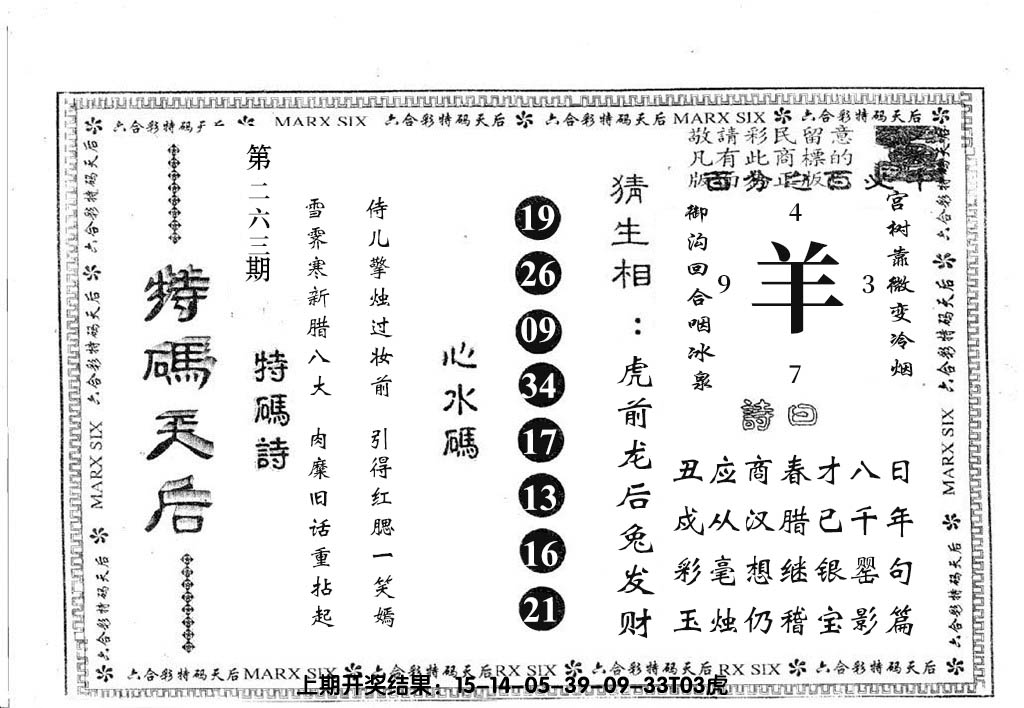 六合彩特码天后 MARX SIX 六合彩特码天后 六合彩特码天后 MARX SIX 六合彩特码天后
敬請彩民留意
凡有此商標的
版面为正版
宫树靠微变冷烟
御沟回合咽冰泉
4
9
羊
3
7
詩曰
日年句篇
八千罂影
才已银宝
春腊继稽
商汉想仍
应从毫烛
丑戍彩玉
猜生相：虎前龙后兔发财
19
26
09
34
17
13
16
21
心水碼
侍儿擎烛过妆前 引得红腮一笑嫣
雪霁寒新腊八大 肉糜旧话重拈起
特碼詩
第二六三期
特碼天后
六合彩特码天后
六合彩特码天后
MARX SIX
六合彩特码天后
六合彩特码天后
六合彩特码天后
MARX SIX
六合彩特码天后
六合彩特码天后 MARX SIX 六合彩特码天后 RX SIX 六合彩特码天后 RX SIX 六合彩特码天后
上期开奖结果：15-14-05-39-09-33T03虎